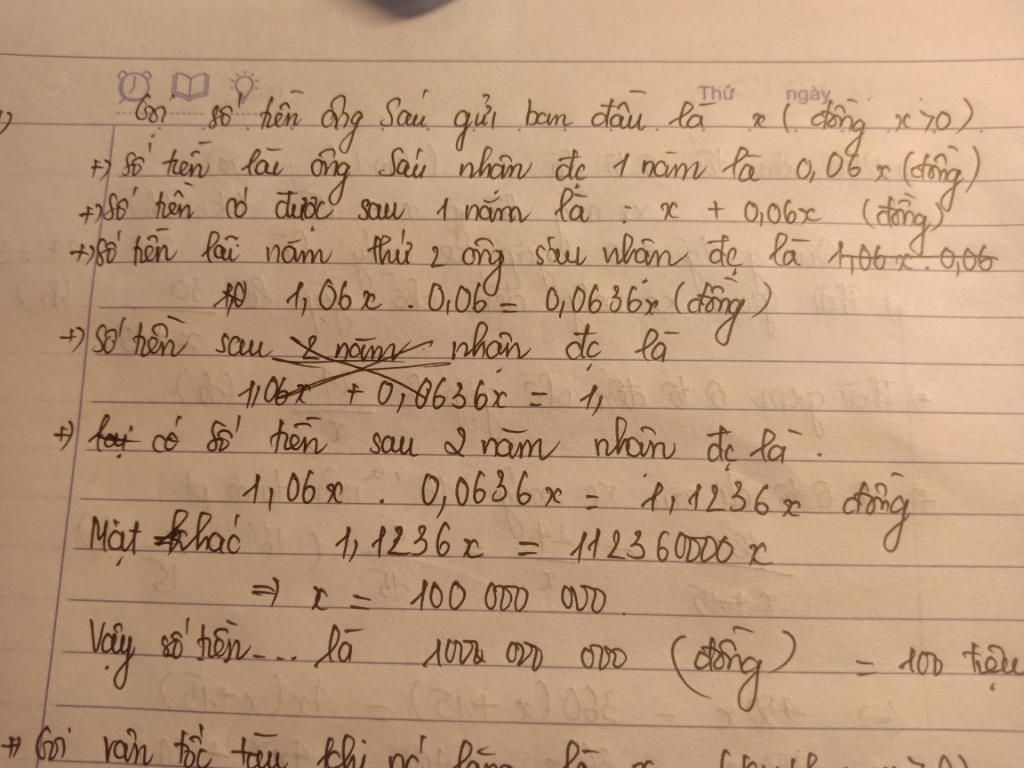 Thứ ngày
Gọi số tiền ông Sáu gửi ban đầu là x ( đồng x>0)
+) số tiền lãi ông Sáu nhận đc 1 năm là 0,06 x (đồng)
+) Số tiền có được sau 1 năm là : x + 0,06x (đồng)
+) số tiền lãi năm thứ 2 ông sáu nhận đc là 1,06x . 0,06
1,06x . 0,06 = 0,0636x (đồng)
+) số tiền sau 2 năm nhận đc là
1,06x + 0,0636x = 1,
+) có số tiền sau 2 năm nhận đc là .
1,06x . 0,0636x = 1,1236x đồng
Mặt khác 1,1236x = 112360000 x
⇒ x = 100 000 000.
Vậy số tiền.... là 100 000 000 (đồng) = 100 triệu
+) Gọi vận tốc tàu khi là x